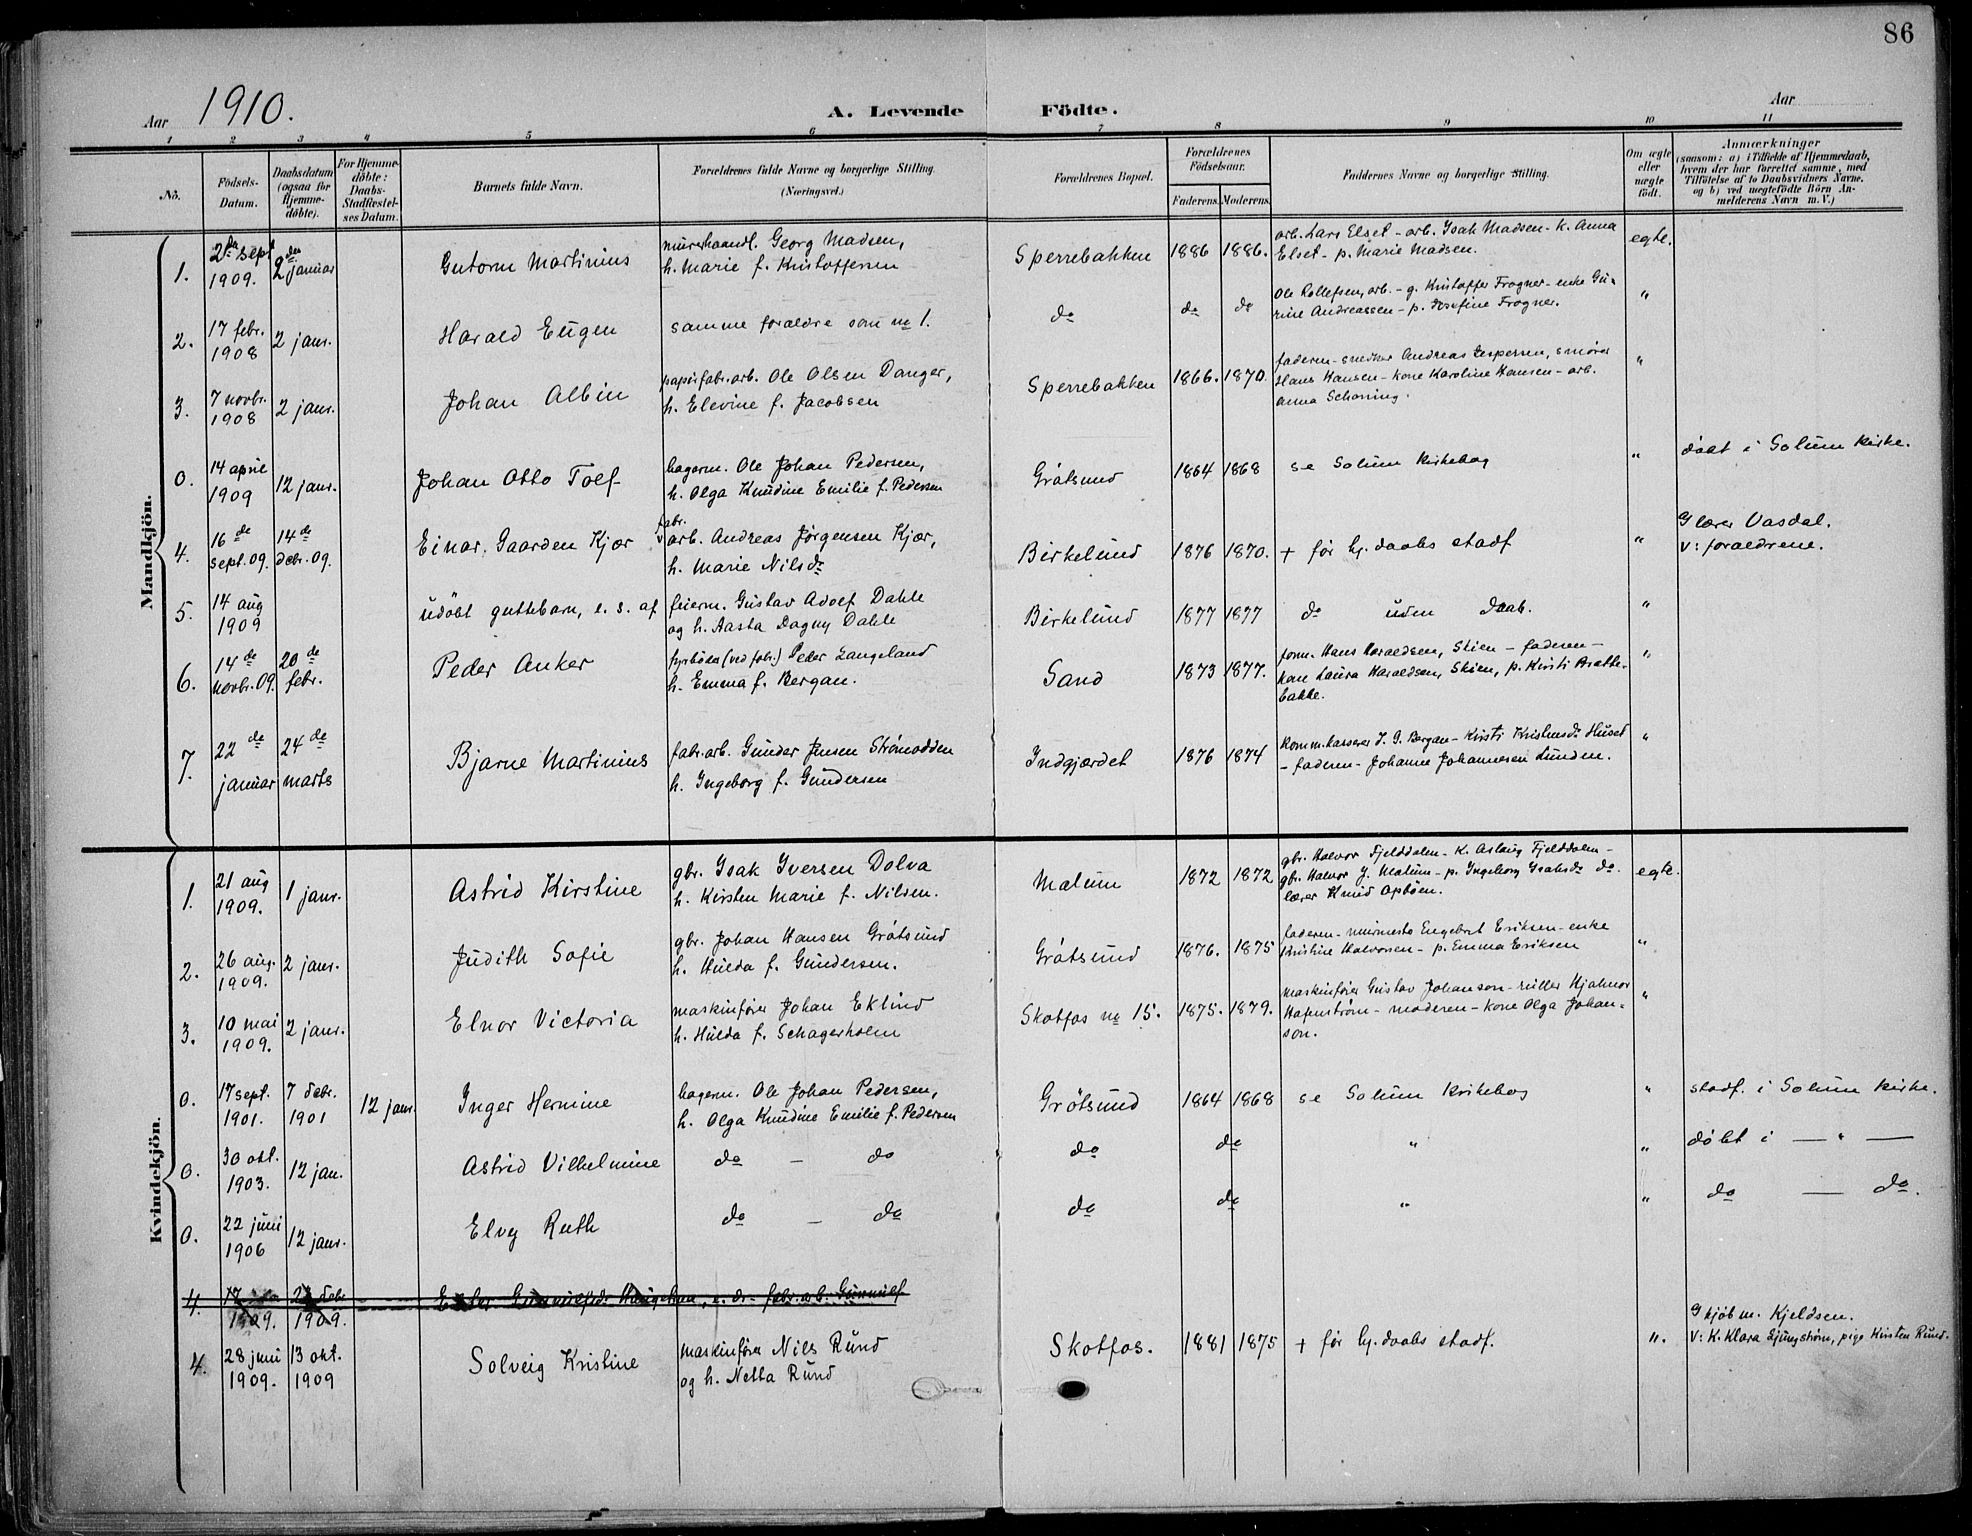 86
Aar 1910. A. Levende Födte. Aar
1 2 3 4 5 6 7 8 9 10 11
No. Födsels-Datum. Daabsdatum (ogsaa for Hjemme-döbte). For Hjemme-döbte: Daabs-Stadfæstelses Datum. Barnets fulde Navn. Forældrenes fulde Navne og borgerlige Stilling. (Næringsvei.) Forældrenes Bopæl. Forældrenes Födselsaar. Faderens. Moderens. Faddernes Navne og borgerlige Stilling. Om ægte eller uægte födt. Anmærkninger (saasom: a) i Tilfælde af Hjemmedaab, hvem der har forrettet samme, med Tilföielse af to Daabsvidners Navne. og b) ved uægtefödte Börn Anmelderens Navn m. V.)
Mandkjön.
1. 2de sept 1909. 2den januar Gutorm Martinius murerhaandl. Georg Madsen, h. Marie f. Kristoffersen Sperrebakken 1886 1886. arb. Lars Elset - arb. Isak Madsen - k. Anna Elset - p. Marie Madsen. egte.
2. 17 febr. 1908 2 janr. Harald Eugen samme foraldre som no 1. do do do Ole Rollefsen, arb. - g. Kristoffer Frogner - enke Gurine Andreassen - p. Josefine Frogner. "
3. 7 novbr. 1908 2 janr. Johan Albin papirfabr.arb. Ole Olsen Danger, h. Elevine f. Jacobsen Sperrebakken 1866. 1870. faderen - snedker Andreas Jespersen, smører Hans Hansen - kone Karoline Hansen - arb. Anna Schoning. "
0. 14 april 1909 12 janr. Johan Otto Tolf hagerm. Ole Johan Pedersen, h. Olga Knudine Emilie f. Pedersen Gråtsund 1864 1868 se Solum Kirkebog " døbt i Solum kirke.
4. 16de sept. 09. 14de debr. 09. Einar Gaarden Kjær fabr. arb. Andreas Jørgensen Kjær, h. Marie Nilsdr Birkelund 1876 1870. + før hj. daabs stadf " G lærer Vasdal. V: foraldrene.
5. 14 aug 1909 udøbt guttebarn, e. s. af feierm. Gustav Adolf Dahle og h. Aasta Dagny Dahle Birkelund 1877 1877 do uden daab. "
6. 14de novbr. 09. 20de febr. Peder Anker fyrbøder (ved fabr.) Peder Langeland h. Emma f. Bergan. Sand 1873 1877. form. Hans Haraldsen, Skien - faderen - kone Laura Haraldsen, Skien, p. Kirsti Brattebakke. "
7. 22de januar 24de marts Bjarne Martinius fabr.arb. Gunder Jensen Strømodden h. Ingeborg f. Gundersen Indgjærdet 1876 1874 komm.kasserer J. G. Bergan - Kirsti Kristensdr Huset - faderen - Johanne Johannesen Lunden. "
Kvindekjön.
1. 21 aug 1909. 1 janr. Astrid Kirstine gbr. Isak Iversen Dolva h. Kirsten Marie f. Nilsen. Melum 1872 1872 gbr. Halvor Fjelddalen - k. Aslaug Fjelddalen - gbr. Halvor J. Melum - p. Ingeborg Isaksdr do. lærer Knud Opbøen. egte.
2. 26 aug. 1909. 2 janr. Judith Sofie gbr. Johan Hansen Gråtsund h. Hulda f. Gundersen. Gråtsund 1876. 1875 faderen - murmester Engebret Eriksen - enke Kristine Halvorsen - p. Emma Eriksen "
3. 10 mai 1909. 2 janr. Elnor Victoria maskinfører Johan Eklind h. Hulda f. Schagerholm Skotfos no 15. 1875. 1879. maskinfører Gustav Johanson - ruller Hjalmar Hafenstrøm - moderen - kone Olga Johanson. "
0. 17 sept. 1901. 7 debr. 1901 12 janr. Inger Hermine hagerm. Ole Johan Pedersen, h. Olga Knudine Emilie f. Pedersen Gråtsund 1864 1868 se Solum kirkebog " stadf. i Solum kirke.
0. 30 okt. 1903. 12 jan. Astrid Vilhelmine do - do do do " " døbt i — " —
0. 22 juni 1906 12 janr. Elvy Ruth do - do do do " " do — do.
4. 17 1909. 27 debr 1909. Ester
4. 28 juni 1909. 13 okt. 1909 Solveig Kristine maskinfører Nils Rund og h. Netta Rund Skotfos. 1881 1875 + før hj. daabs stadf. ". G kjøbm. Kjeldsen. V: K. Klara Ljungstrøm, pige Kirsten Rund.